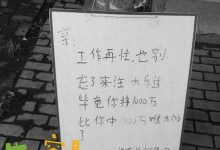 亲:
工作再忙,也别
忘了来注大乐透
毕竟你挣1000万
比你中1000万难多
了